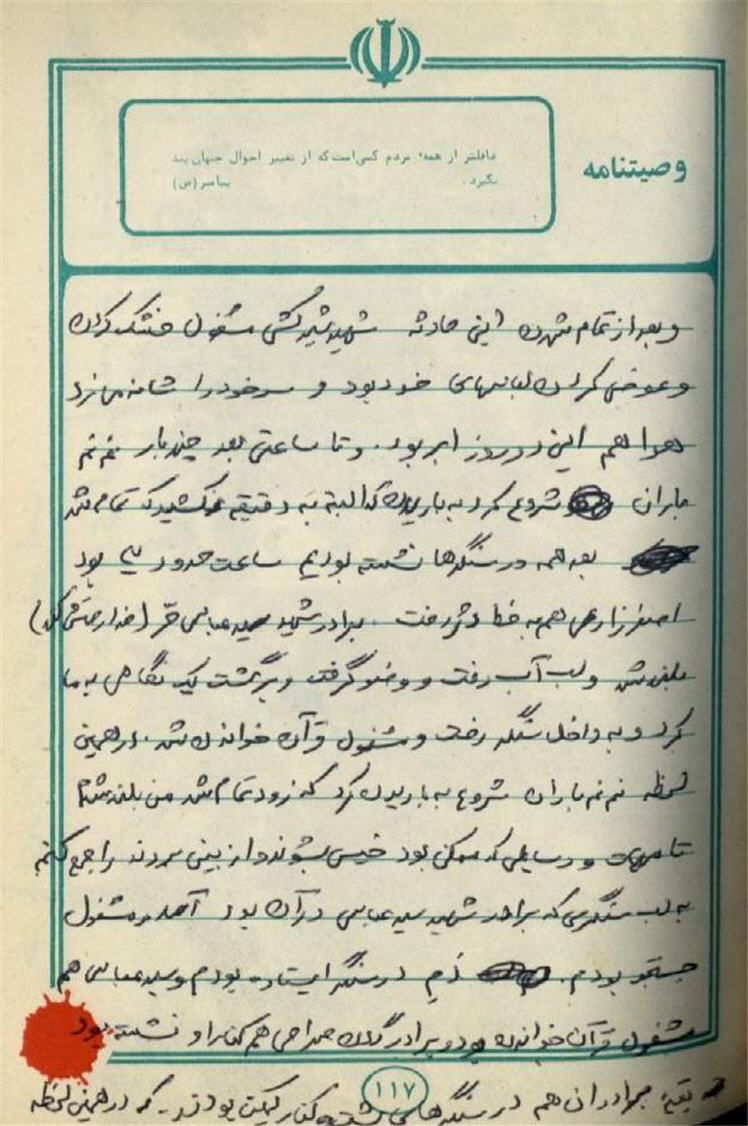 وصیتنامه
غافلتر از همهٔ مردم کسی‌است که از تغییر احوال جهان پند
نگیرد. پیامبر (ص)
و بعد از تمام شدن این حادثه شهید شیرکشی مشغول خشک کردن
و عوض کردن لباسهای خود بود و سر خود را شانه می زد
هوا هم این دو روز ابر بود. و تا ساعتی بعد چند بار نم نم
باران شروع کرد به باریدن که البته به دقیقه نمیکشید که تمام شد
بعد همه در سنگرها نشسته بودیم ساعت حدود بود
اصغر زارعی هم به خط رفت. برادر شهید سید عباس
بلند شد و لب آب رفت و وضو گرفت و برگشت یک نگاهی به ما
کرد و به داخل سنگر رفت و مشغول قرآن خواندن شد. در همین
لحظه نم نم باران شروع به باریدن کرد که زود تمام شد من بلند شدم
تا و وسایلی که ممکن بود خیس بشوند و از بین بروند را جمع کنم
به لب سنگری که برادر شهید سید عباس در آن بود آمد و مشغول
جستجو بودم. دم در سنگر ایستاده بودم و سید عباس هم
مشغول قرآن خواندن بود و برادر هم کنار او نشسته بود
بقیه برادران هم در سنگرهای کنار بودند. که در همین لحظه
۱۱۷